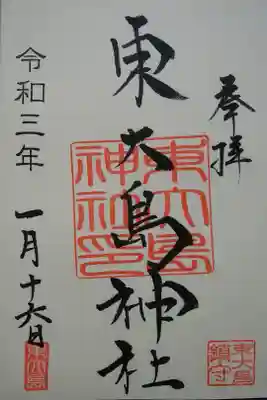 奉拝
東大島神社
東大島
神社印
令和三年
一月十六日
東大島
鎮守
東大島